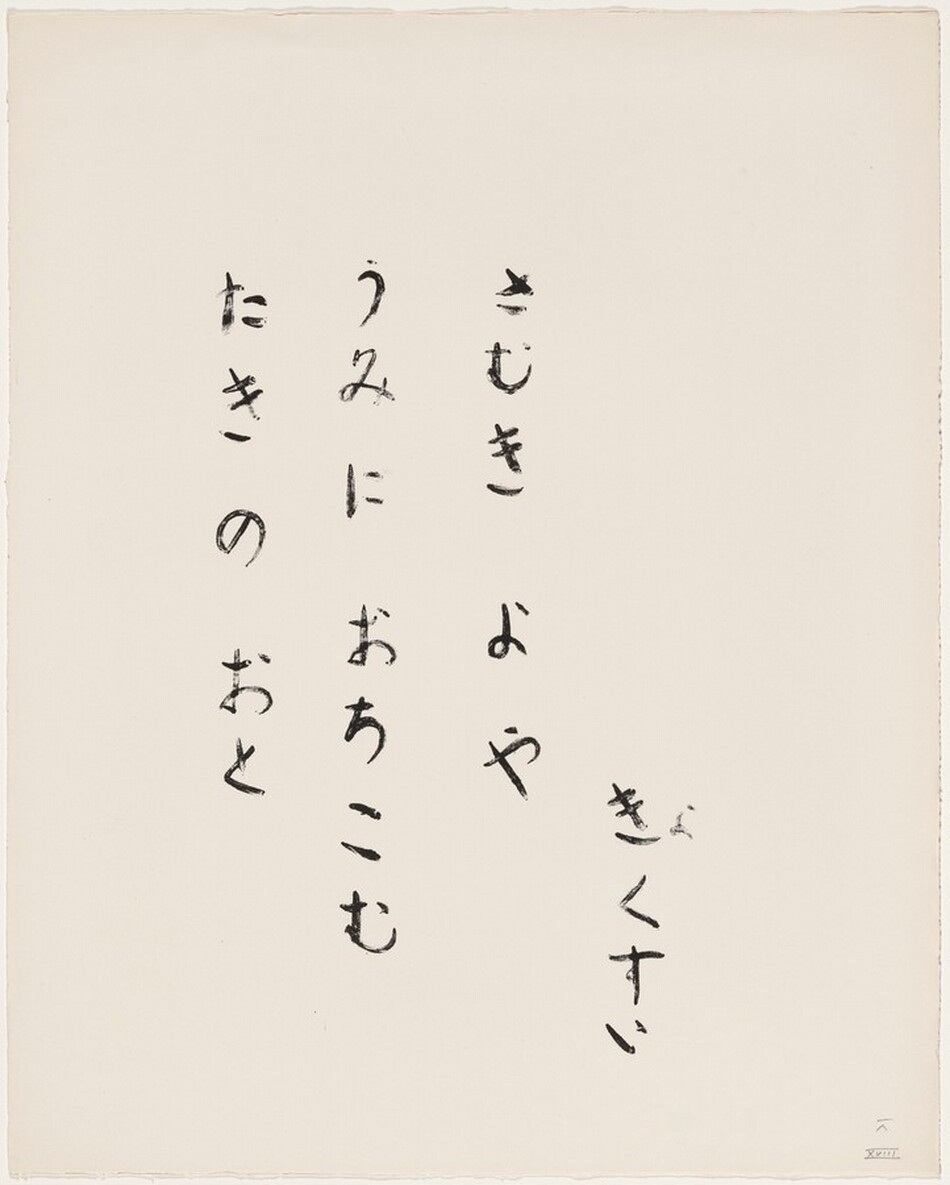 きょくすい
さむき よ や
うみに おちこむ
たきの おと
XVIII